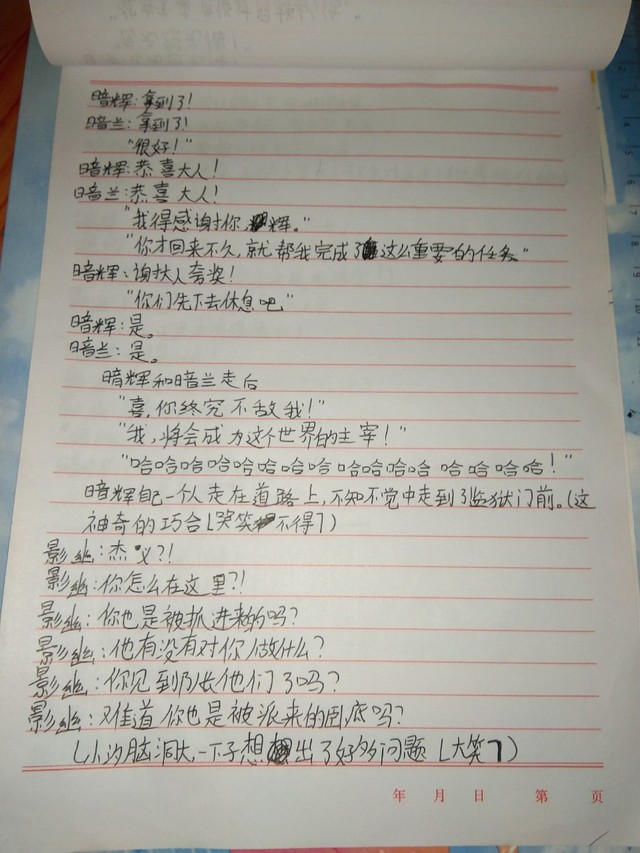 暗辉：拿到了！
暗兰：拿到了！
“很好！”
暗辉：恭喜大人！
暗兰：恭喜大人！
“我得感谢你，辉。”
“你才回来不久，就帮我完成了这么重要的任务”
暗辉：谢大人夸奖！
“你们先下去休息吧”
暗辉：是。
暗兰：是。
暗辉和暗兰走后
“喜，你终究不敌我！”
“我，将会成为这个世界的主宰！”
“哈哈哈哈哈哈哈哈哈哈哈哈哈哈哈哈！”
暗辉自己一个人走在道路上，不知不觉中走到了监狱门前。（这
神奇的巧合[哭笑不得]）
影幽：杰义？！
影幽：你怎么在这里？！
影幽：你也是被抓进来的吗？
影幽：他有没有对你做什么？
影幽：你见到队长他们了吗？
影幽：难道你也是被派来的卧底吗？
（小汐脑洞大，一下子想出了好多问题[大笑]）
年 月 日 第 页